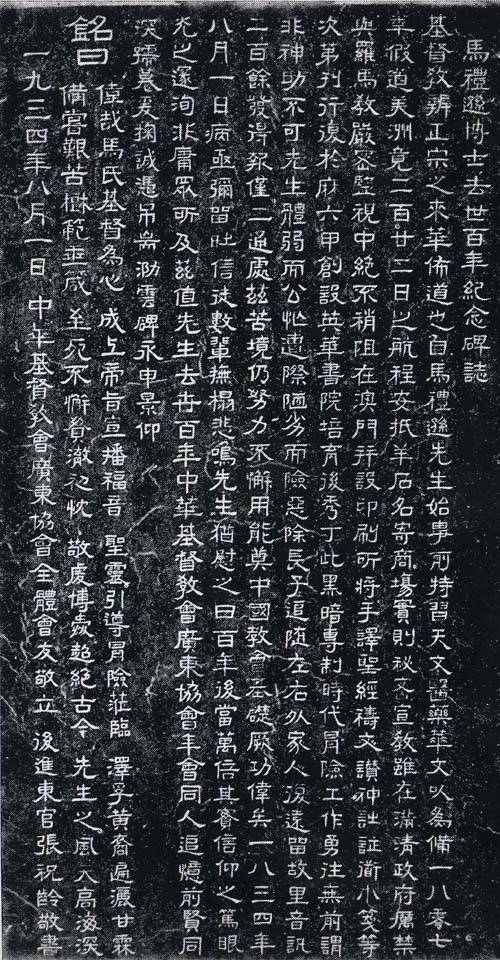 馬禮遜博士去世百年紀念碑誌
基督教辨正宗之來華佈道也自馬禮遜先生始事前特習天文醫藥華文以為備一八零七
年假道美洲竟二百廿二日之航程安抵羊石名寄商場實則秘密宣教雖在滿清政府厲禁
與羅馬教嚴密監視中絕不稍阻在澳門并設印刷所將手譯聖經禱文讚神詩証衛小箋等
次第刊行復於麻六甲創設英華書院培育後秀丁此黑暗專制時代冒險工作勇往無前謂
非神助不可先生體弱而公忙遭際陋劣而險惡除長子追隨左右外家人復遠留故里音訊
二百餘發得報僅二通處茲苦境仍努力不懈用能奠中國教會基礎厥功偉矣一八三四年
八月一日病亟彌留吐信徒數輩撫榻悲鳴先生猶慰之曰百年後當萬倍其賚信仰之篤眼
光之遠洵非庸眾所及茲值先生去世百年中華基督教會廣東協會年會同人追憶前賢同
深孺慕爰掬誠憑吊耑泐雲碑永申景仰
銘曰 偉哉馬氏基督為心 成上帝旨宣播福音 聖靈引導冒險蒞臨 澤孚黃裔遍灑甘霖
備嘗艱苦樹範垂箴 至死不懈貫澈初忱 敬虔博超絕古今 先生之風天高海深
一九三四年八月一日 中華基督教會廣東協會全體會友敬立 後進東官張祝齡敬書